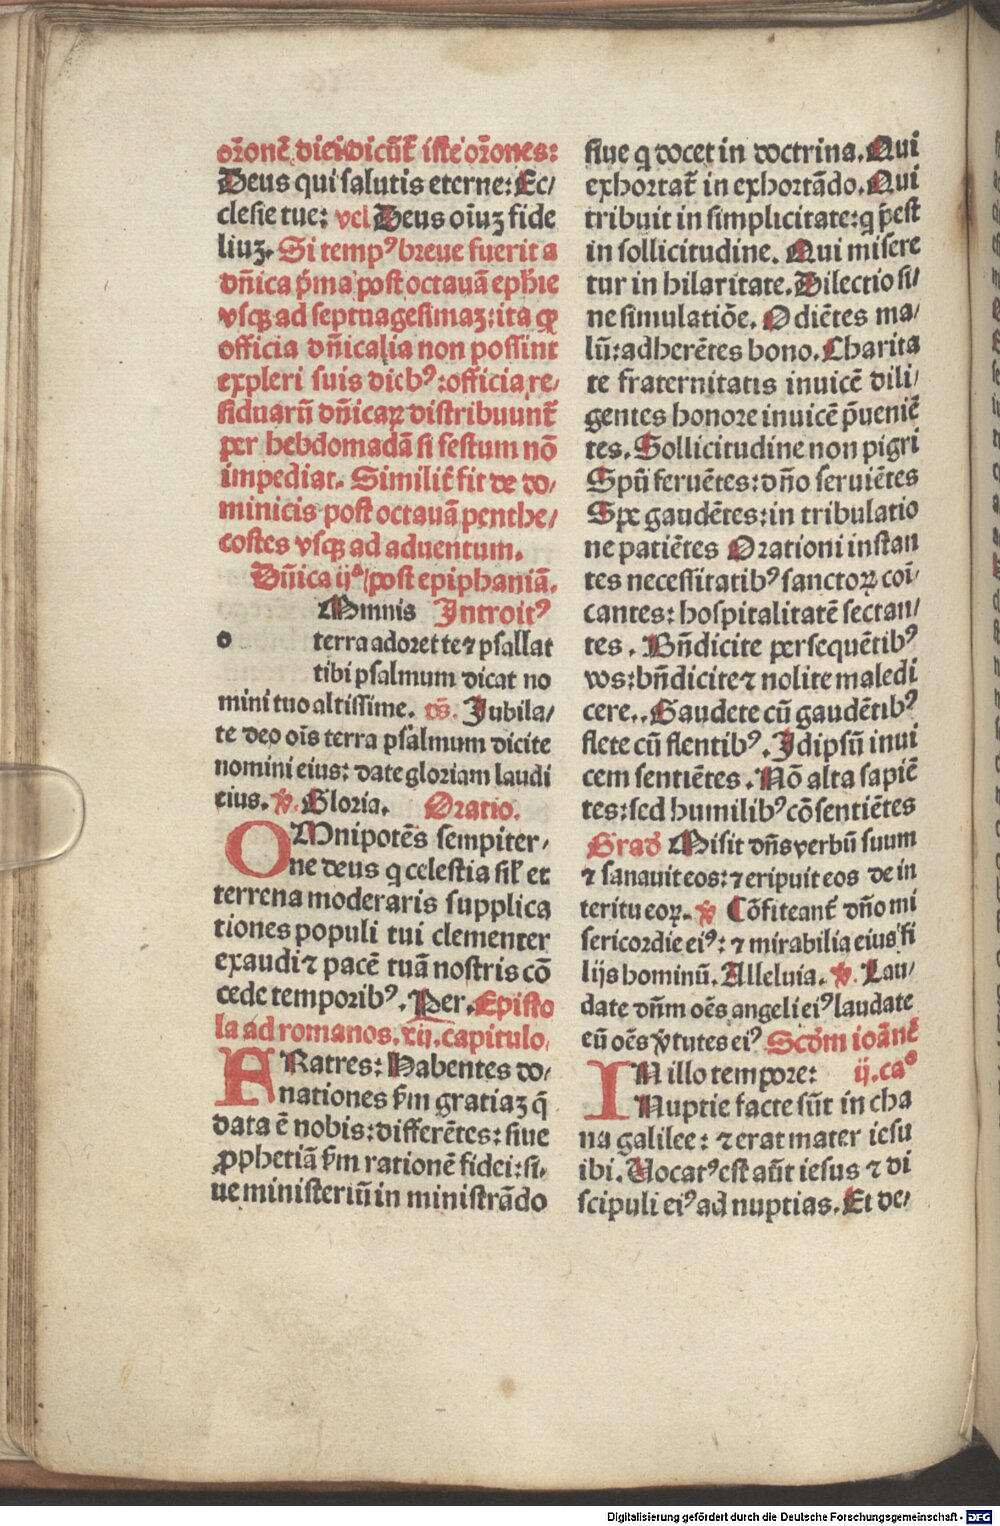 or̄onē diei dicūt᷑ iste or̄ones:
Deus qui salutis eterne: Ec/
clesie tue: vel Deus oīuꝫ fide
liuꝫ. Si temp⁹ breue fuerit a
dn̄ica p̄ma post octauā eph̄ie
vsqꝫ ad septuagesimaꝫ: ita ꝙ
officia dn̄icalia non possint
expleri suis dieb⁹: officia re/
siduarū dn̄icaꝝ distribuunt᷑
per hebdomadā si festum nō
impediat. Similit᷑ fit de do/
minicis post octauā penthe/
costes vsqꝫ ad aduentum.
Dn̄ica ijª post epiphaniā.
Omnis Introit⁹
o terra adoret te ⁊ psallat
tibi psalmum dicat no
mini tuo altissime. p̄s. Jubila/
te deo oīs terra psalmum dicite
nomini eius: date gloriam laudi
eius. ℣. Gloria. Oratio.
OMnipotēs sempiter/
ne deus q celestia sil̄ et
terrena moderaris supplica
tiones populi tui clementer
exaudi ⁊ pacē tuā nostris cō
cede temporib⁹. Per. Episto
la ad romanos. xij. capitulo.
FRatres: Habentes do/
nationes ẜm gratiaꝫ q̄
data ē nobis: differētes: siue
ꝓphetiā ẜm rationē fidei: si/
ue ministeriū in ministrādo
siue q docet in doctrina. Qui
exhortat᷑ in exhortādo. Qui
tribuit in simplicitate: q p̄est
in sollicitudine. Qui misere
tur in hilaritate. Dilectio si/
ne simulatiōe. Odiētes ma/
lū: adherētes bono. Charita
te fraternitatis inuicē dili/
gentes honore inuicē p̄ueniē
tes. Sollicitudine non pigri
Spū feruētes: dn̄o seruiētes
Spe gaudētes: in tribulatio
ne patiētes Orationi instan
tes necessitatib⁹ sanctoꝝ coī/
cantes: hospitalitatē sectan/
tes. Bn̄dicite persequētib⁹
vos: bn̄dicite ⁊ nolite maledi
cere.. Gaudete cū gaudētib⁹
flete cū flentib⁹. Idipsū inui
cem sentiētes. Nō alta sapiē
tes: sed humilib⁹ cōsentiētes
Grad᷑ Misit dn̄s verbū suum
⁊ sanauit eos: ⁊ eripuit eos de in
teritu eoꝝ. ℣ Cōfiteant᷑ dn̄o mi
sericordie ei⁹: ⁊ mirabilia eius fi
lijs hominū. Alleluia. ℣. Lau/
date dn̄m oēs angeli ei⁹ laudate
eū oēs v̓tutes ei⁹ Scd̄m ioānē
IN illo tempore: ij. caº
Nuptie facte sūt in cha
na galilee: ⁊ erat mater iesu
ibi. Uocat⁹ est aūt iesus ⁊ di
scipuli ei⁹ ad nuptias. Et de/
Digitalisierung gefördert durch die Deutsche Forschungsgemeinschaft - DFG